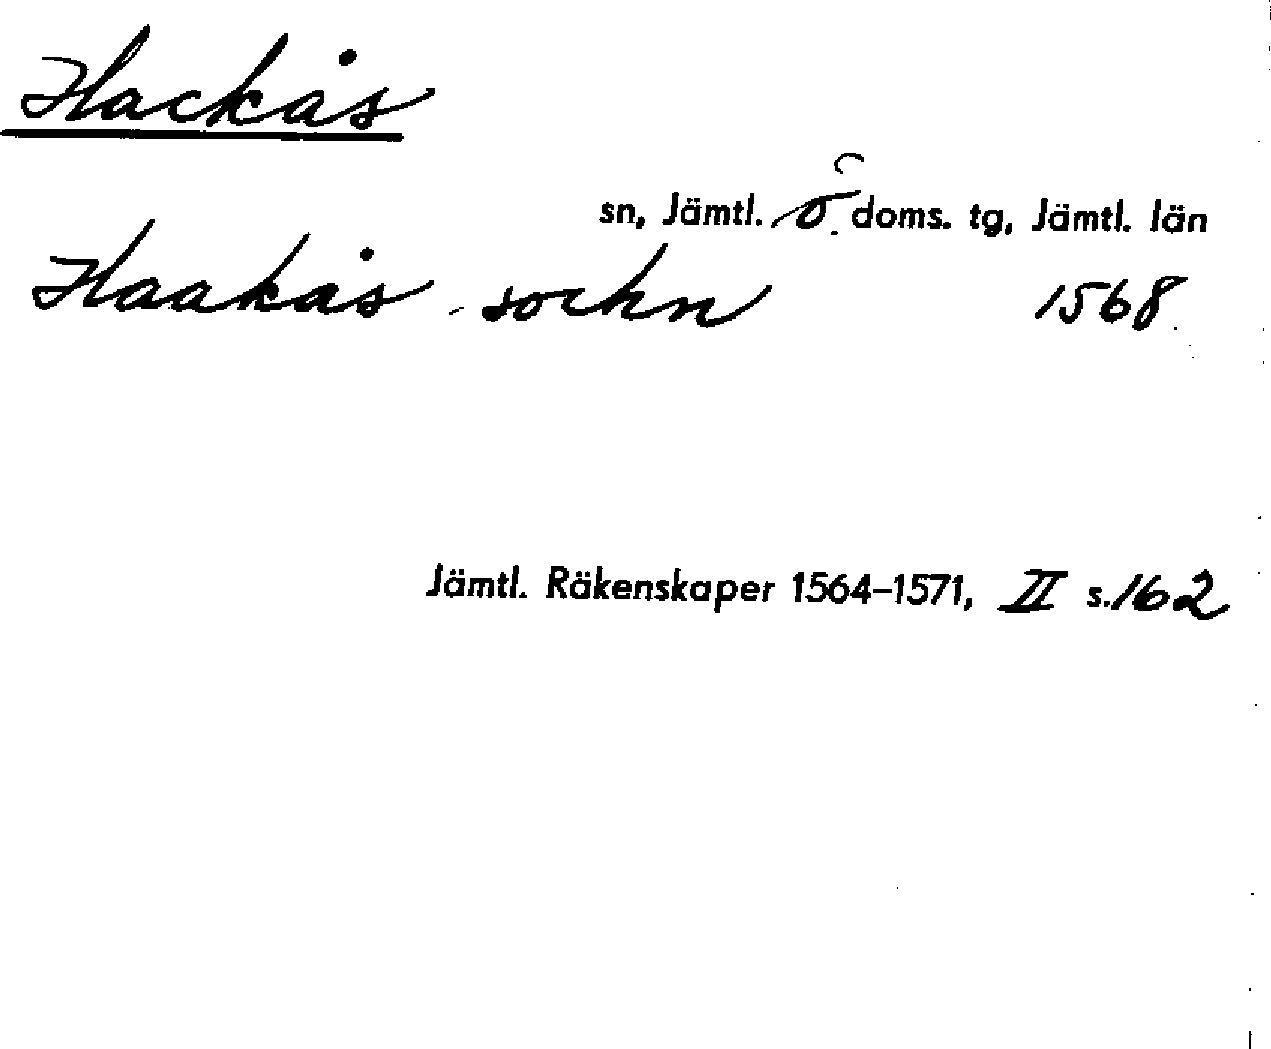 Hackås
sn, Jämtl. ö. doms. tg, Jämtl. län
Haakås sockn 1568
Jämtl. Räkenskaper 1564-1571, II s. 162